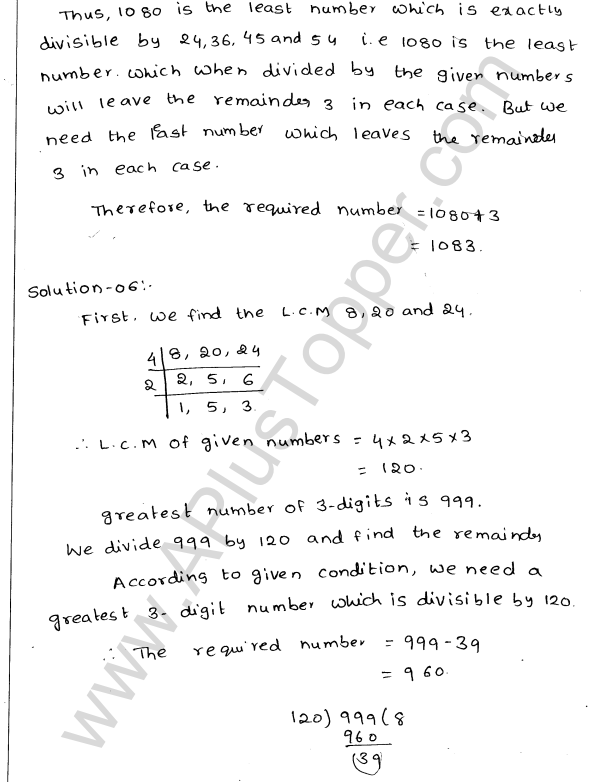 Thus, 1080 is the least number which is exactly
divisible by 24, 36, 45 and 54 i.e 1080 is the least
number. which when divided by the given numbers
will leave the remainder 3 in each case. But we
need the last number which leaves the remainder
3 in each case.
Therefore, the required number = 1080+3
= 1083.
Solution-06:-
First, we find the L.C.M 8, 20 and 24.
4 | 8, 20, 24
2 | 2, 5, 6
| 1, 5, 3
∴ L.C.M of given numbers = 4×2×5×3
= 120.
greatest number of 3-digits is 999.
We divide 999 by 120 and find the remainder
According to given condition, we need a
greatest 3-digit number which is divisible by 120.
∴ The required number = 999-39
= 960.
120) 999 (8
960
39
www.APlusTopper.com